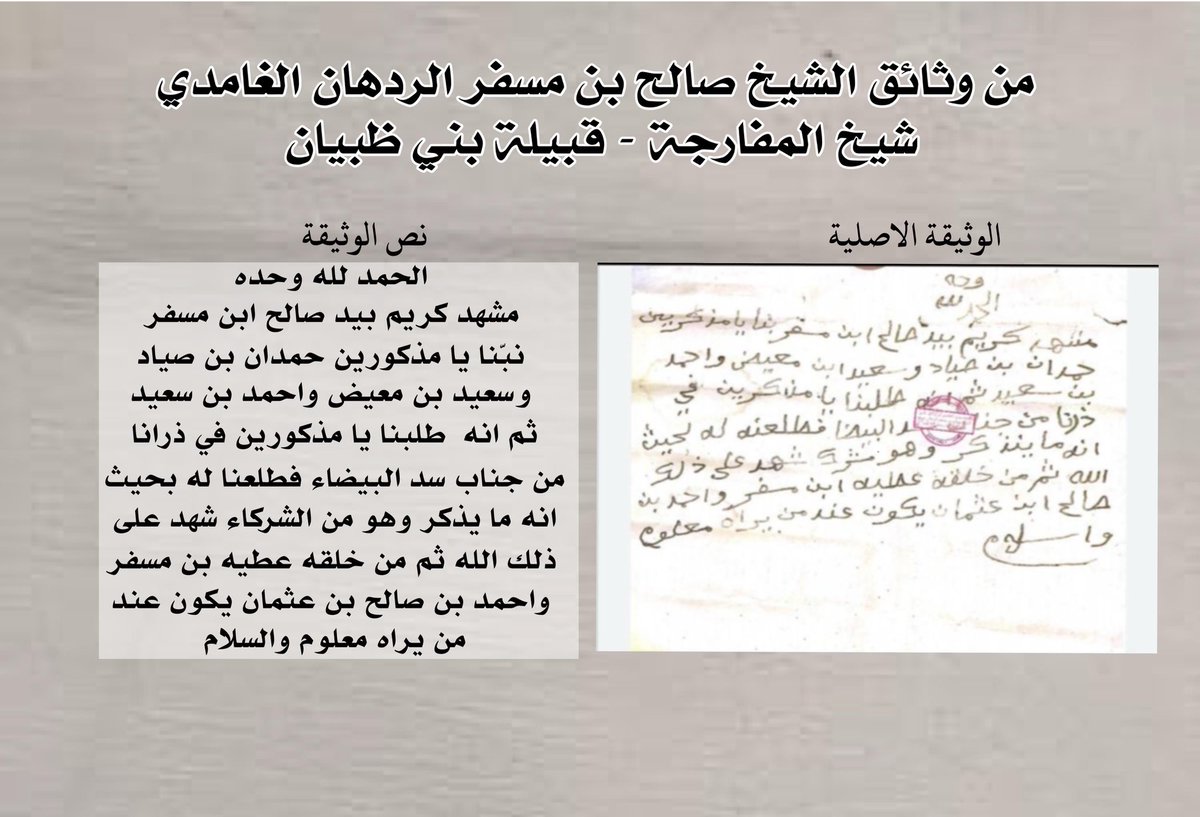 من وثائق الشيخ صالح بن مسفر الردهان الغامدي
شيخ المفارجة - قبيلة بني ظبيان
الوثيقة الاصلية
وحه
الحمد لله
مشهد كريم بيد صالح ابن مسفر بنا يا مذكورين
حمدان بن صياد وسعيد ابن معيض واحمد
بن سعيد ثم انه طلبنا يا مذكرين في
ذرنا من جناب سد البيضا فطلعنه له بحيث
انه ما ينذكر وهو شهد على ذلك
الله ثم من خلقه عطيه ابن مسفر واحمد بن
صالح ابن عثمان يكون عند من يراه معلوم
واسلام
نص الوثيقة
الحمد لله وحده
مشهد كريم بيد صالح ابن مسفر
نبّنا يا مذكورين حمدان بن صياد
وسعيد بن معيض واحمد بن سعيد
ثم انه طلبنا يا مذكورين في ذرانا
من جناب سد البيضاء فطلعنا له بحيث
انه ما يذكر وهو من الشركاء شهد على
ذلك الله ثم من خلقه عطيه بن مسفر
واحمد بن صالح بن عثمان يكون عند
من يراه معلوم والسلام